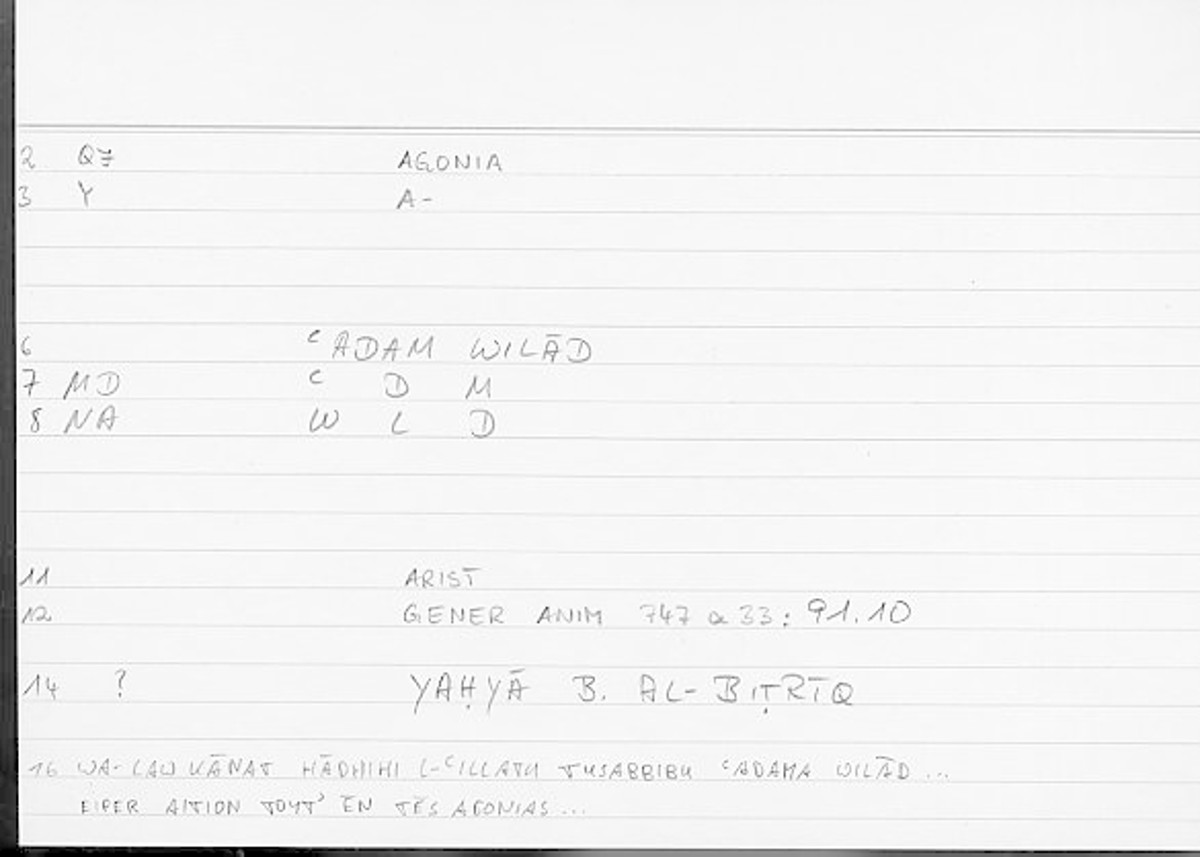 2 QZ AGONIA
3 Y A-
6 ʿADAM WILĀD
7 MD ʿ D M
8 NA W L D
11 ARIST
12 GENER ANIM 747 a 33 : 91.10
14 ? YAḤYĀ B. AL-BIṬRĪQ
16 WA-LAW KĀNAT HĀDHIHI L-ʿILLATU TUSABBIBU ʿADAMA WILĀD ...
EIPER AITION TOYT' ĒN TĒS AGONIAS ...